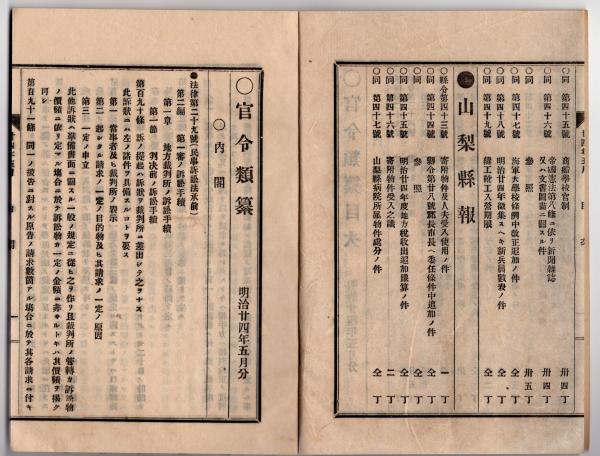 ○同 第四十五號 商船學校官制 卅四丁
○同 第四十六號 帝國憲法第八條ニ依リ新聞雜誌
又ハ文書圖畫ニ關スル件 卅四丁
○同 參照 卅五丁
○同 第四十七號 海軍大學校條例中改正追加ノ件 仝丁
○同 第四十八號 明治廿四年徵集スヘキ新兵員數表ノ件 仝丁
○同 第四十九號 仝丁
山梨縣報
○縣令第四十三號 寄附物件及人夫受入使用ノ件 一丁
○同 第四十四號 縣令第廿八號郡長市長ヘ委任條件中追加ノ件 仝丁
○同 參照 仝丁
○同 第四十五號 明治廿四年度地方稅收出追加豫算ノ件 仝丁
○同 第四十六號 寄附物件受入之議 二丁
○同 第四十七號 山梨縣病院所屬物件處分ノ件 仝丁
○官令類纂 明治廿四年五月分
○內閣
●法律第二十九號(民事訴訟法承前)
第二編 第一審ノ訴訟手續
第一章 地方裁判所ノ訴訟手續
第一節 判決前ノ訴訟手續
第百九十條 訴ノ提起ハ訴狀ヲ裁判所ニ差出シテ之ヲ爲ス
此訴狀ニハ左ノ諸件ヲ具備スルコトヲ要ス
第一 當事者及ヒ裁判所ノ表示
第二 起シタル請求ノ一定ノ目的物及ヒ其請求ノ一定ノ原因
第三 一定ノ申立
此他訴狀ハ準備書面ニ關スル一般ノ規定ニ從ヒ之ヲ作リ且裁判所ノ管轄カ訴訟物
ノ價額ニ依リ定マル場合ニ於テ訴訟物カ一定ノ金額ニ非サルトキハ其價額ヲ揭ク
可シ
第百九十一條 同一ノ被吿ニ對スル原吿ノ請求數箇アル場合ニ於テ其各請求ニ付キ